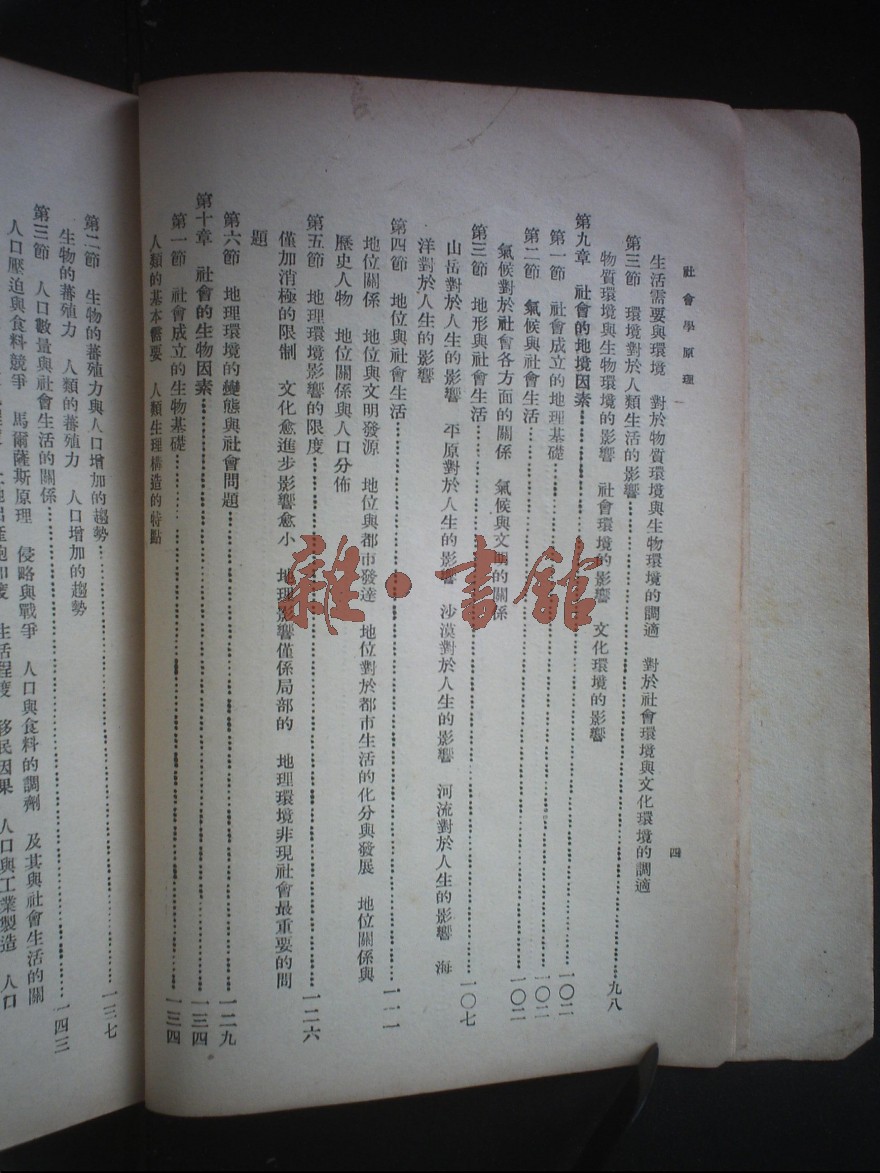 社會學原理
四
生活需要與環境　對於物質環境與生物環境的調適　對於社會環境與文化環境的調適
第三節　環境對於人類生活的影響……九八
物質環境與生物環境的影響　社會環境的影響　文化環境的影響
第九章　社會的地境因素……一〇二
第一節　社會成立的地理基礎……一〇二
第二節　氣候與社會生活……一〇二
氣候對於社會各方面的關係　氣候與文明的關係
第三節　地形與社會生活……一〇七
山岳對於人生的影響　平原對於人生的影響　沙漠對於人生的影響　河流對於人生的影響　海
洋對於人生的影響
第四節　地位與社會生活……一一一
地位關係　地位與文明發源　地位與都市發達　地位對於都市生活的化分與發展　地位關係與
歷史人物　地位關係與人口分佈
第五節　地理環境影響的限度……一二六
僅加消極的限制　文化愈進步影響愈小　地理影響僅係局部的　地理環境非現社會最重要的問
題
第六節　地理環境的變態與社會問題……一二九
第十章　社會的生物因素……一三四
第一節　社會成立的生物基礎……一三四
人類的基本需要　人類生理構造的特點
第二節　生物的蕃殖力與人口增加的趨勢……一三七
生物的蕃殖力　人類的蕃殖力　人口增加的趨勢
第三節　人口數量與社會生活的關係……一四三
人口壓迫與食料競爭　馬爾薩斯原理　侵略與戰爭　人口與食料的調劑　及其與社會生活的關
生活程度　移民因果　人口與工業製造　人口
雜·書館